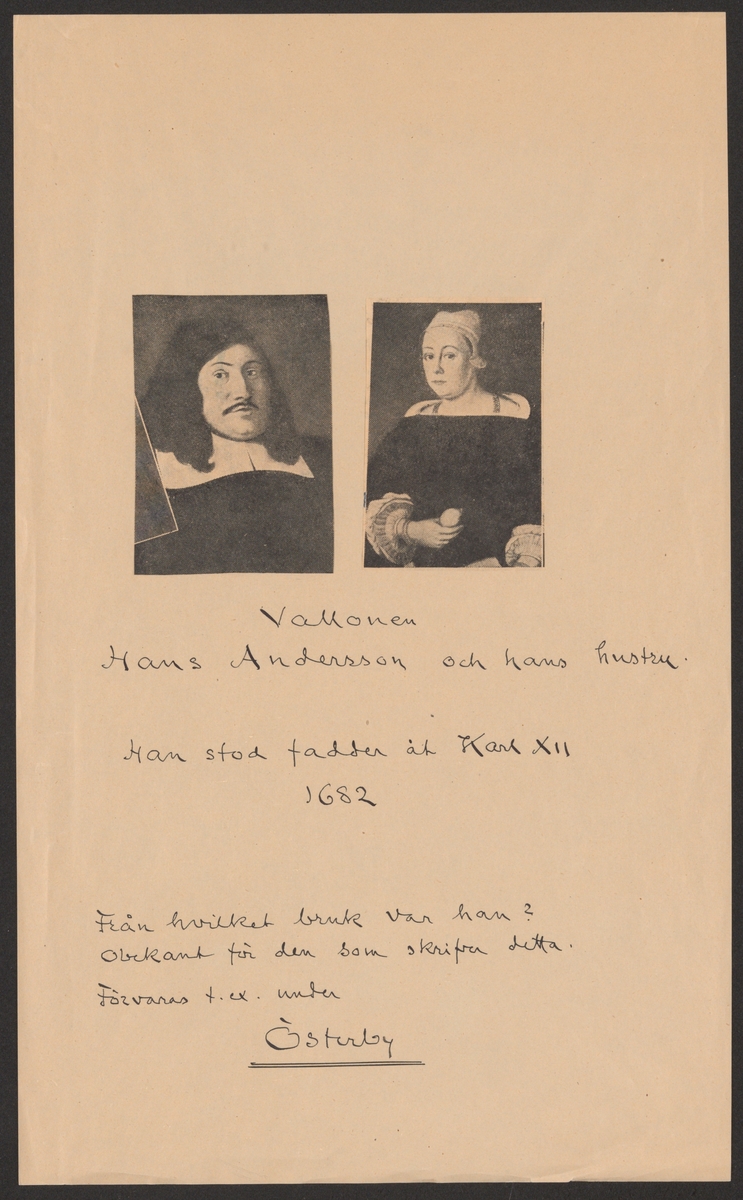 Vallonen
Hans Andersson och hans hustru.
Han stod fadder åt Karl XII
1682
Från hvilket bruk var han?
Obekant för den som skrifver detta.
Förvaras t.ex. under
Österby